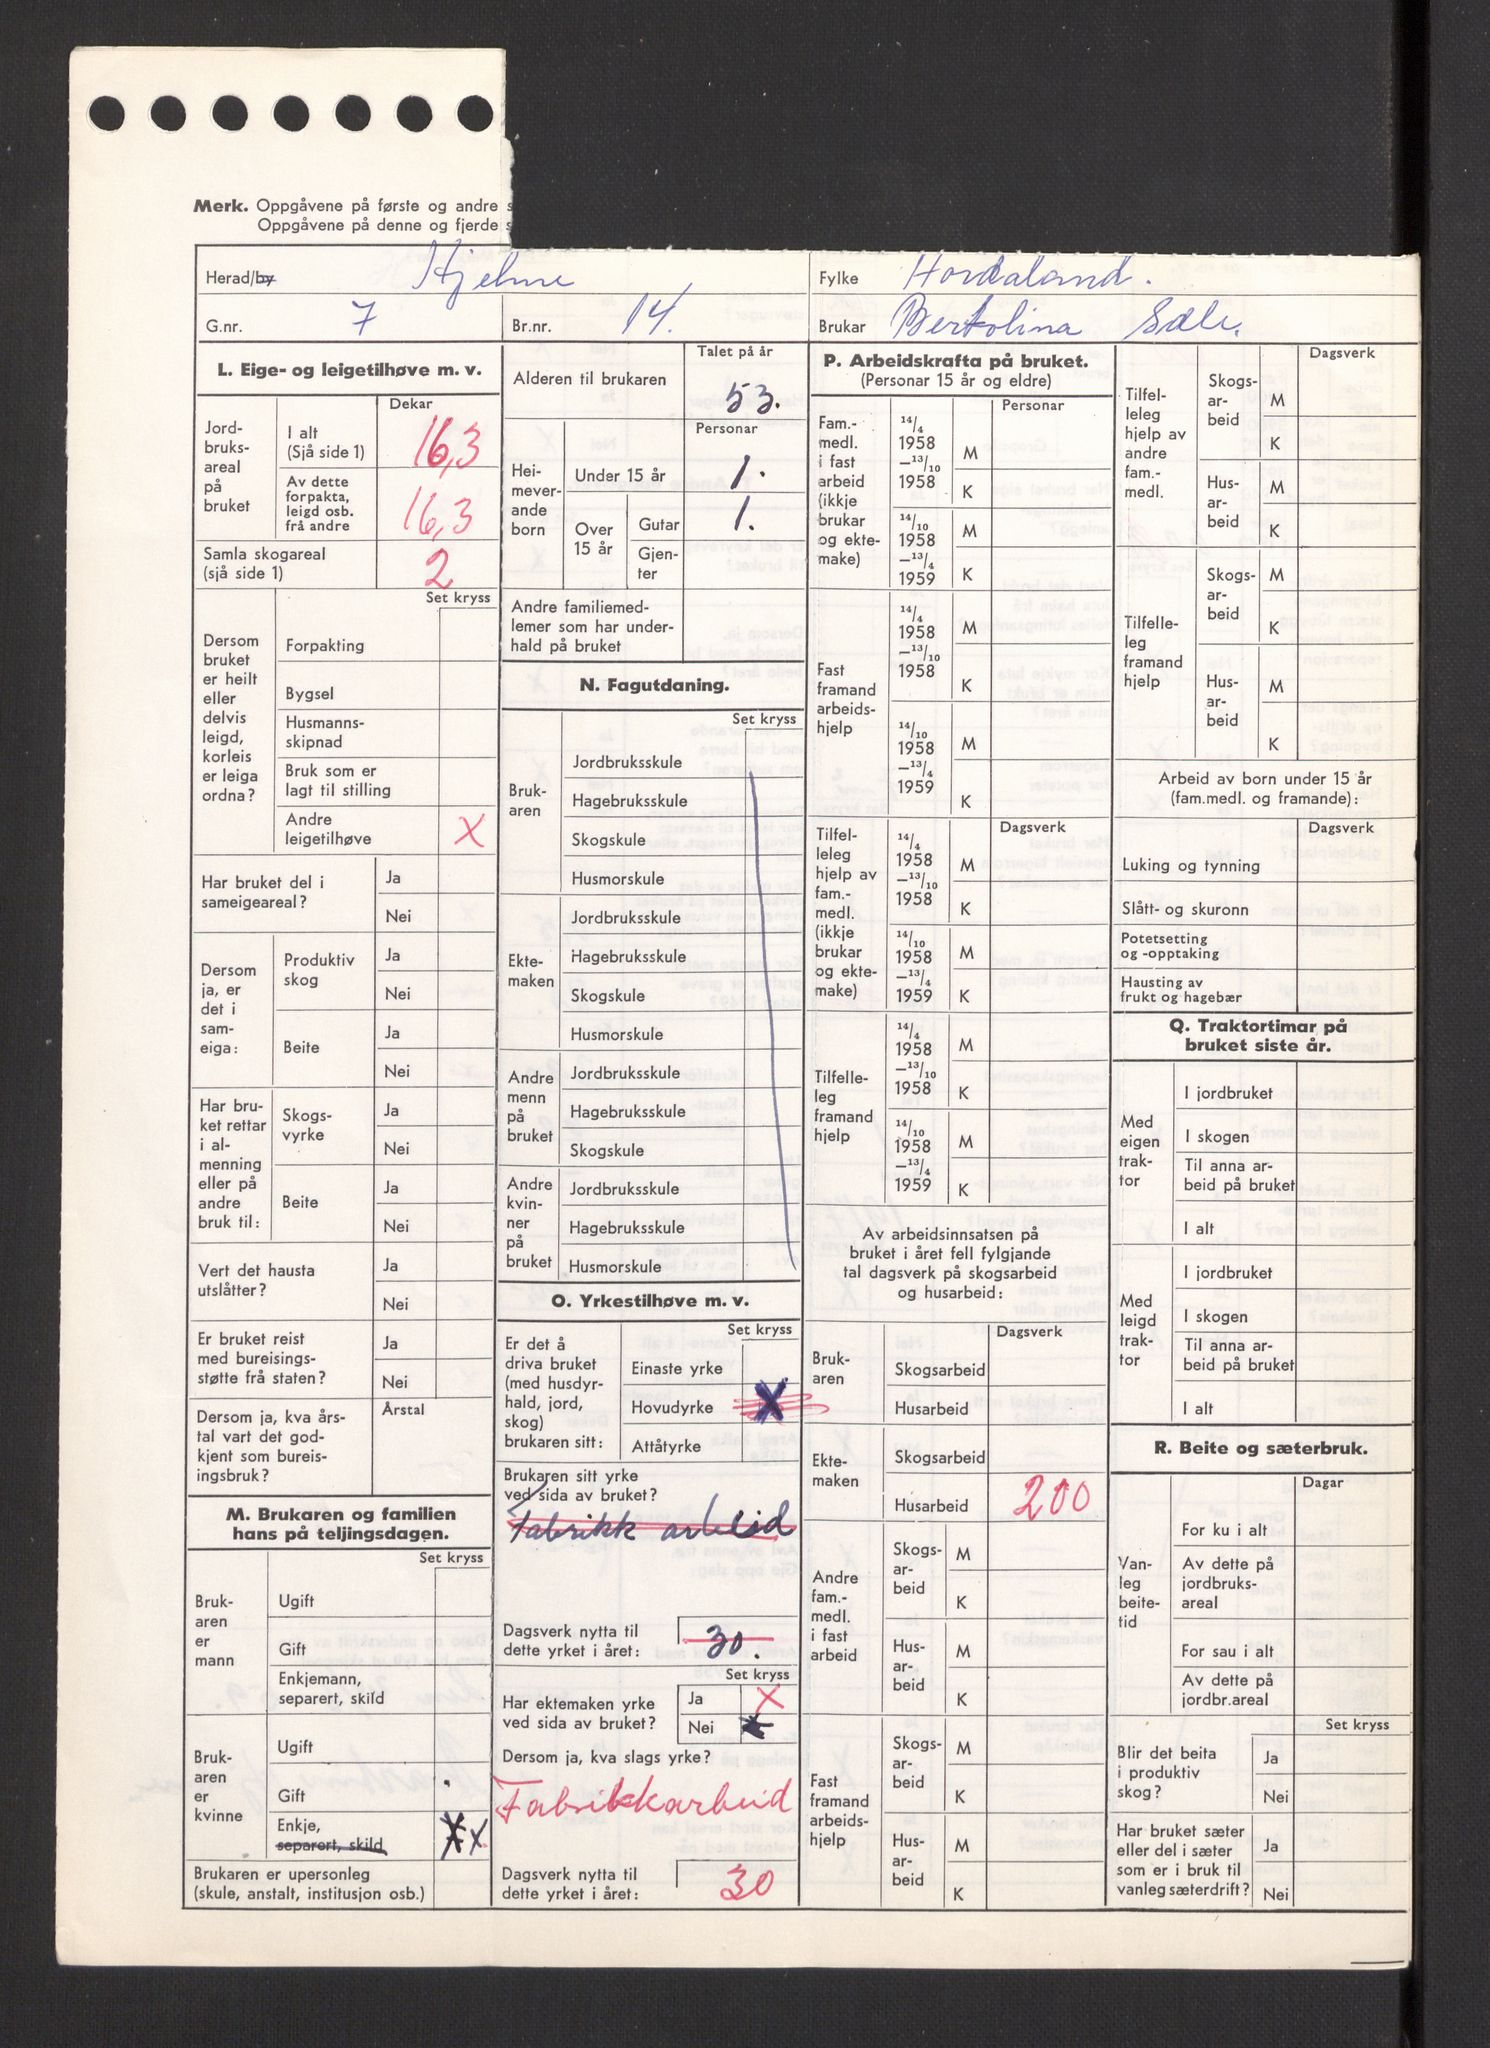 Merk. Oppgåvene på første og andre s
Oppgåvene på denne og fjerde s
Herad/by Hjelme
Fylke Hordaland.
G.nr. 7
Br.nr. 14.
Brukar Bertolina Sæle.
L. Eige- og leigetilhøve m. v.
Dekar
Jord-
bruks-
areal
på
bruket
I alt
(Sjå side 1) 16,3
Av dette
forpakta,
leigd osb.
frå andre 16,3
Samla skogareal
(sjå side 1) 2
Set kryss
Dersom
bruket
er heilt
eller
delvis
leigd,
korleis
er leiga
ordna?
Forpakting
Bygsel
Husmanns-
skipnad
Bruk som er
lagt til stilling
Andre
leigetilhøve X
Har bruket del i
sameigeareal?
Ja
Nei
Dersom
ja, er
det i
sam-
eiga:
Produktiv
skog
Ja
Nei
Beite
Ja
Nei
Har bru-
ket rettar
i al-
menning
eller på
andre
bruk til:
Skogs-
vyrke
Ja
Nei
Beite
Ja
Nei
Vert det hausta
utslåtter?
Ja
Nei
Er bruket reist
med bureisings-
støtte frå staten?
Ja
Nei
Dersom ja, kva års-
tal vart det god-
kjent som bureis-
ingsbruk?
Årstal
M. Brukaren og familien
hans på teljingsdagen.
Set kryss
Bruk-
aren
er
mann
Ugift
Gift
Enkjemann,
separert, skild
Bruk-
aren
er
kvinne
Ugift
Gift
Enkje,
separert, skild X X.
Brukaren er upersonleg
(skule, anstalt, institusjon osb.)
Talet på år
Alderen til brukaren 53.
Personar
Hei-
mever-
ande
born
Under 15 år 1.
Over
15 år
Gutar 1.
Gjen-
ter
Andre familiemed-
lemer som har under-
hald på bruket
N. Fagutdaning.
Set kryss
Bruk-
aren
Jordbruksskule
Hagebruksskule
Skogskule
Husmorskule
Ekte-
maken
Jordbruksskule
Hagebruksskule
Skogskule
Husmorskule
Andre
menn
på
bruket
Jordbruksskule
Hagebruksskule
Skogskule
Andre
kvin-
ner
på
bruket
Jordbruksskule
Hagebruksskule
Husmorskule
O. Yrkestilhøve m. v.
Set kryss
Er det å
driva bruket
(med husdyr-
hald, jord,
skog)
brukaren sitt:
Einaste yrke
Hovudyrke X
Attåtyrke
Brukaren sitt yrke
ved sida av bruket?
Fabrikk arbeid
Dagsverk nytta til
dette yrket i året: 30.
Set kryss
Har ektemaken yrke
ved sida av bruket?
Ja X
Nei X
Dersom ja, kva slags yrke?
Fabrikkarbeid
Dagsverk nytta til
dette yrket i året: 30
P. Arbeidskrafta på bruket.
(Personar 15 år og eldre)
Personar
Fam.-
medl.
i fast
arbeid
(ikkje
brukar
og ekte-
make)
14/4
1958
–13/10
1958
M
K
14/10
1958
–13/4
1959
M
K
Fast
framand
arbeids-
hjelp
14/4
1958
–13/10
1958
M
K
14/10
1958
–13/4
1959
M
K
Dagsverk
Tilfel-
leleg
hjelp av
fam.-
medl.
(ikkje
brukar
og ekte-
make)
14/4
1958
–13/10
1958
M
K
14/10
1958
–13/4
1959
M
K
Tilfelle-
leg
framand
hjelp
14/4
1958
–13/10
1958
M
K
14/10
1958
–13/4
1959
M
K
Av arbeidsinnsatsen på
bruket i året fell fylgjande
tal dagsverk på skogsarbeid
og husarbeid:
Dagsverk
Bruk-
aren
Skogsarbeid
Husarbeid
Ekte-
maken
Skogsarbeid
Husarbeid 200
Andre
fam.-
medl.
i fast
arbeid
Skogs-
ar-
beid
M
K
Hus-
ar-
beid
M
K
Fast
framand
arbeids-
hjelp
Skogs-
ar-
beid
M
K
Hus-
ar-
beid
M
K
Dagsverk
Tilfel-
leleg
hjelp av
andre
fam.-
medl.
Skogs-
ar-
beid
M
K
Hus-
ar-
beid
M
K
Tilfelle-
leg
framand
hjelp
Skogs-
ar-
beid
M
K
Hus-
ar-
beid
M
K
Arbeid av born under 15 år
(fam.medl. og framande):
Dagsverk
Luking og tynning
Slått- og skuronn
Potetsetting
og -opptaking
Hausting av
frukt og hagebær
Q. Traktortimar på
bruket siste år.
Med
eigen
trak-
tor
I jordbruket
I skogen
Til anna ar-
beid på bruket
I alt
Med
leigd
trak-
tor
I jordbruket
I skogen
Til anna ar-
beid på bruket
I alt
R. Beite og sæterbruk.
Dagar
Van-
leg
beite-
tid
For ku i alt
Av dette på
jordbruks-
areal
For sau i alt
Av dette på
jordbr.areal
Set kryss
Blir det beita
i produktiv
skog?
Ja
Nei
Har bruket sæter
eller del i sæter
som er i bruk til
vanleg sæterdrift?
Ja
Nei